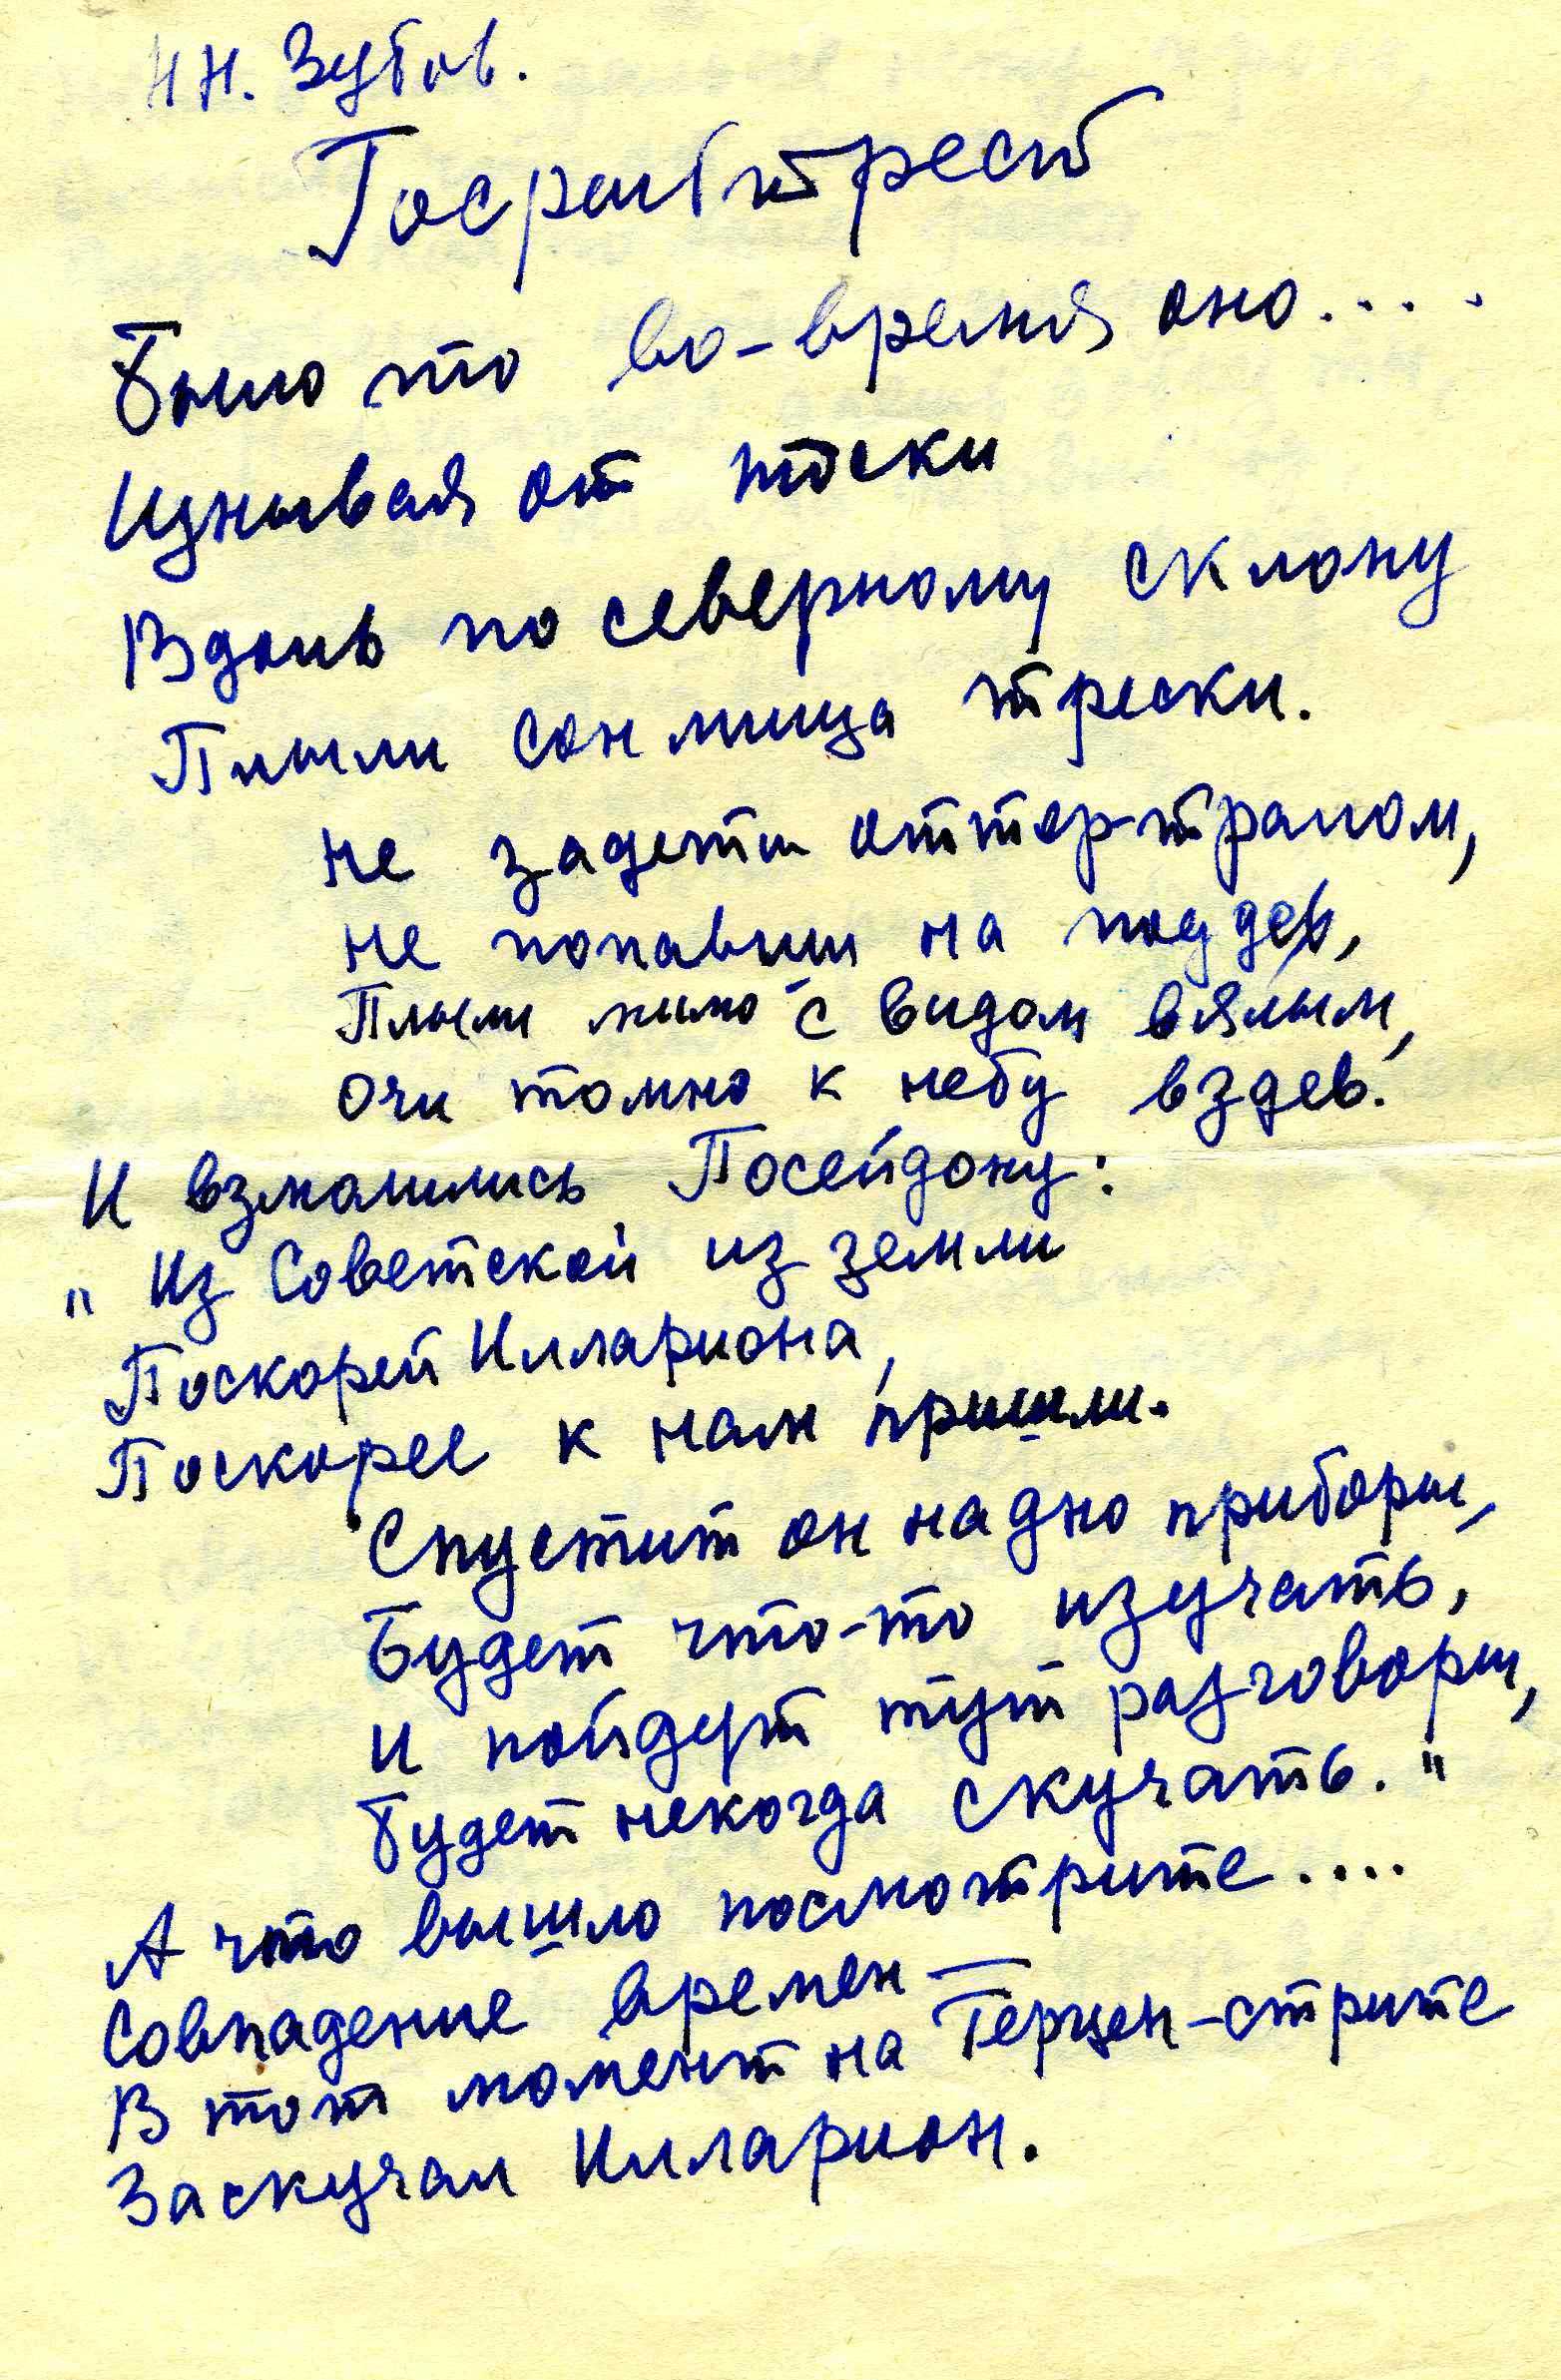 Н Н. Зубов.
Госрыбтрест
Было то во-время оно....
Изнывая от тоски
Вдоль по северному склону
Плыли сонмища трески.
Не задеты оттер-тралом,
Не попавши на поддев,
Плыли мимо с видом вялым,
Очи томно к небу вздев.
И взмолились Посейдону:
"Из Советской из земли
Поскорей Иллариона,
Поскорее к нам пришли.
Спустит он на дно приборы,
Будет что-то изучать,
И пойдут тут разговоры,
Будет некогда скучать."
А что вышло посмотрите....
Совпадение времен —
В тот момент на Герцен-стрите
Заскучал Илларион.